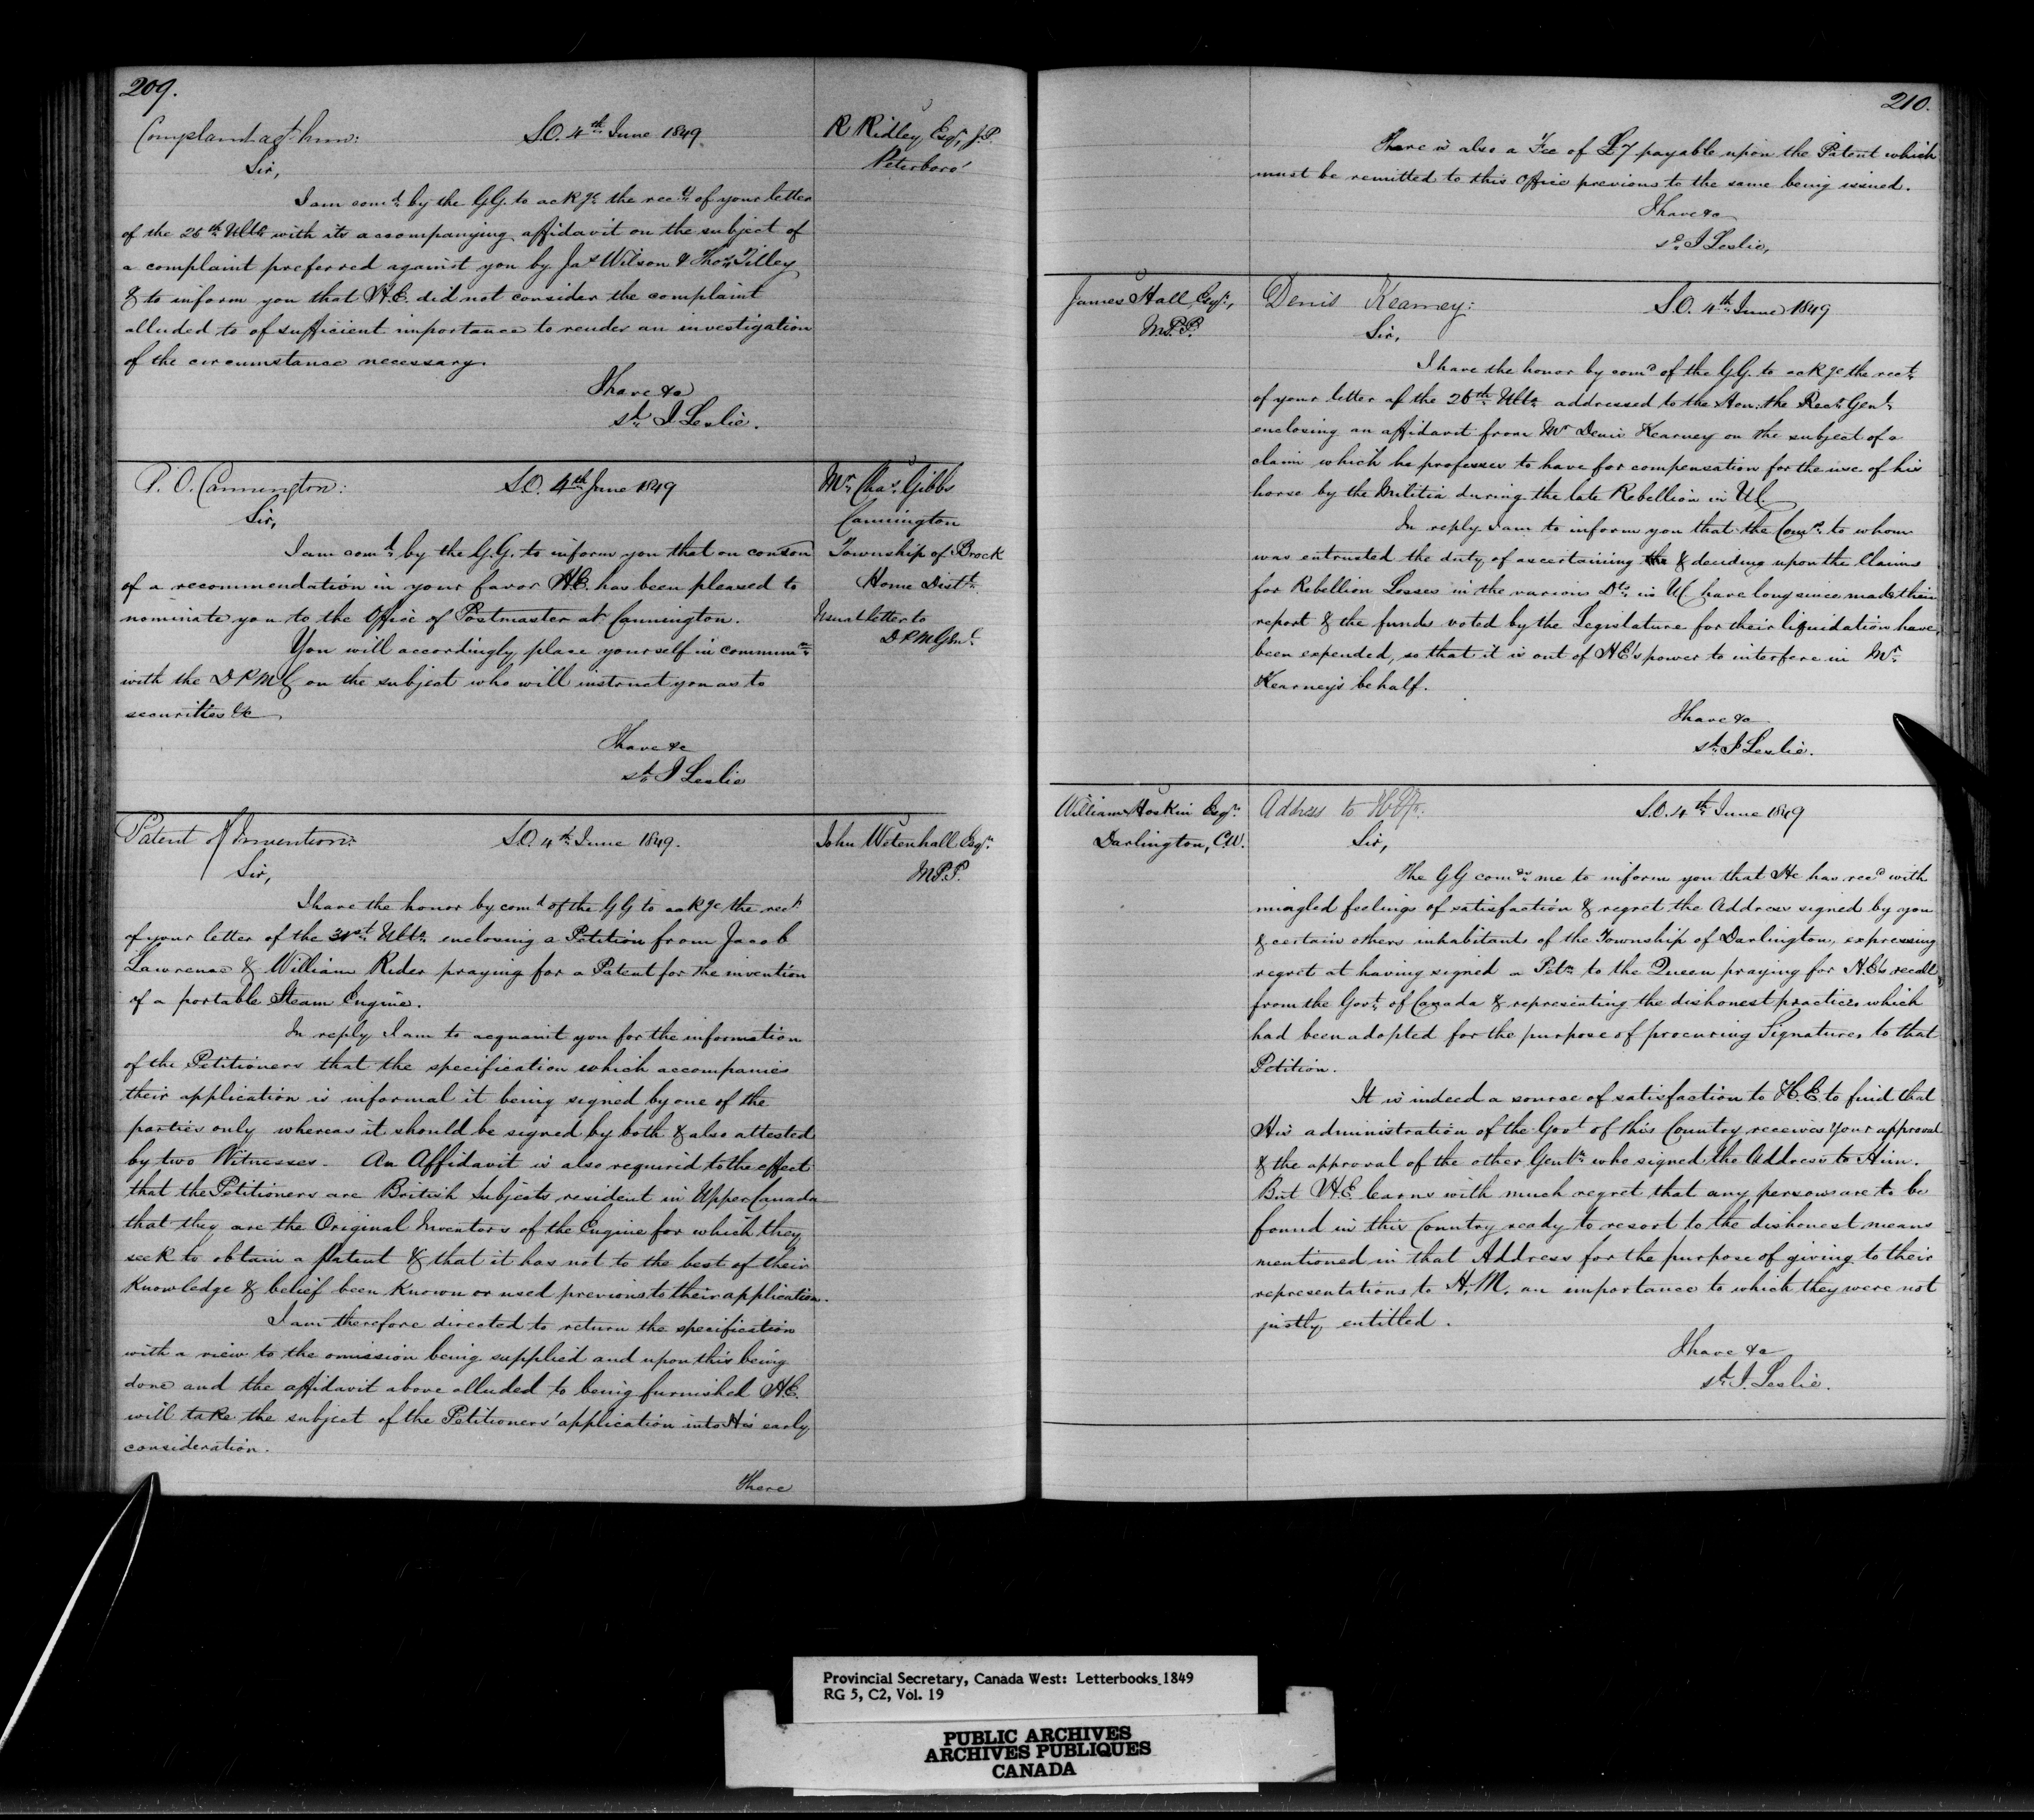 209.
Complaint agt him:
S.O. 4th June 1849
R Ridley, Esqr, J.P.
Peterboro'
Sir,
I am comd by the G.G. to ackge the rect of your letter
of the 26th Ulto with its accompanying affidavit on the subject of
a complaint preferred against you by Jas Wilson & Thos Tilley
& to inform you that H.E. did not consider the complaint
alluded to of sufficient importance to render an investigation
of the circumstance necessary.
I have &c
sd J Leslie.
P.O. Cannington:
S.O. 4th June 1849
Mr Chas Gibbs
Cannington
Township of Brock
Home Distt
Usual letter to
D P M Genl
Sir,
I am comd by the G.G. to inform you that on conson
of a recommendation in your favor H.E. has been pleased to
nominate you to the Office of Postmaster at Cannington.
You will accordingly place yourself in communn
with the D P M G on the subject who will instruct you as to
securities &c
I have &c
sd J Leslie
Patent of Invention:
S.O. 4th June 1849.
John Wetenhall Esqr
M.P.P.
Sir,
I have the honor by comd of the G G to ackge the rect
of your letter of the 31st Ulto enclosing a Petition from Jacob
Lawrence & William Rider praying for a Patent for the invention
of a portable Steam Engine.
In reply I am to acquaint you for the information
of the Petitioners that the specification which accompanies
their application is informal it being signed by one of the
parties only whereas it should be signed by both & also attested
by two Witnesses. An Affidavit is also required to the effect
that the Petitioners are British Subjects resident in Upper Canada
that they are the Original Inventors of the Engine for which they
seek to obtain a patent & that it has not to the best of their
Knowledge & belief been known or used previous to their application.
I am therefore directed to return the specification
with a view to the omission being supplied and upon this being
done and the affidavit above alluded to being furnished H.E.
will take the subject of the Petitioners' application into His early
consideration.
There
210.
There is also a Fee of £7 payable upon the Patent which
must be remitted to this Office previous to the same being issued.
I have &c
sd J Leslie,
James Hall, Esqr,
M.P.P.
Denis Kearney:
S.O. 4th June 1849
Sir,
I have the honor by comd of the G.G. to ackge the rect
of your letter of the 26th Ulto addressed to the Hon. the Recr Genl
enclosing an affidavit from Mr Denis Kearney on the subject of a
claim which he professes to have for compensation for the use of his
horse by the Militia during the late Rebellion in U.C.
In reply I am to inform you that the Comrs to whom
was entrusted the duty of ascertaining the & deciding upon the Claims
for Rebellion Losses in the various Dts in U C have long since made their
report & the funds voted by the Legislature for their liquidation have
been expended, so that it is out of H E's power to interfere in Mr
Kearney's behalf.
I have &c
sd J Leslie.
William Hoskin Esqr
Darlington, C.W.
Address to
S.O. 4th June 1849
Sir,
The G G comds me to inform you that He has recd with
mingled feelings of satisfaction & regret the Address signed by you
& certain others inhabitants of the Township of Darlington, expressing
regret at having signed a Petn to the Queen praying for H.E's recall
from the Govt of Canada & representing the dishonest practices which
had been adopted for the purpose of procuring Signatures to that
Petition.
It is indeed a source of satisfaction to H.E. to find that
His administration of the Govt of this Country receives your approval
& the approval of the other Gentn who signed the Address to Him.
But H.E. learns with much regret that any persons are to be
found in this Country ready to resort to the dishonest means
mentioned in that Address for the purpose of giving to their
representations to H.M. an importance to which they were not
justly entitled.
I have &c
sd J. Leslie.
Provincial Secretary, Canada West: Letterbooks 1849
RG 5, C2, Vol. 19
PUBLIC ARCHIVES
ARCHIVES PUBLIQUES
CANADA